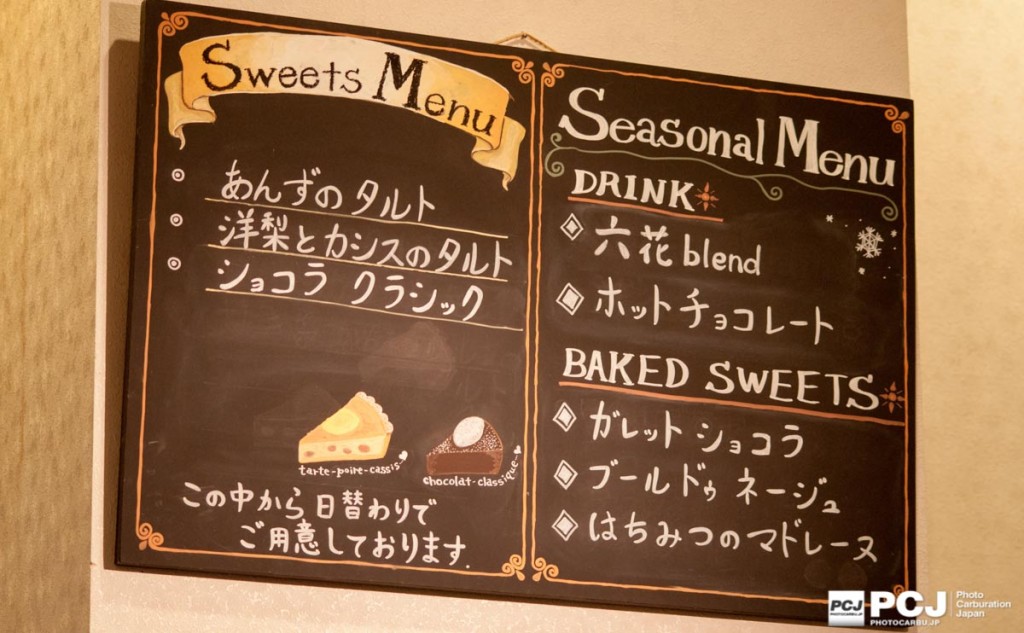 Sweets Menu
あんずのタルト
洋梨とカシスのタルト
ショコラ クラシック
tarte-poire-cassis
chocolat-classique
この中から日替わりで
ご用意しております.
Seasonal Menu
DRINK
六花blend
ホットチョコレート
BAKED SWEETS
ガレットショコラ
ブールドゥネージュ
はちみつのマドレーヌ
PCJ
PHOTOCARBU.JP
PCJ
PHOTOCARBU.JP
Photo
Carburation
Japan